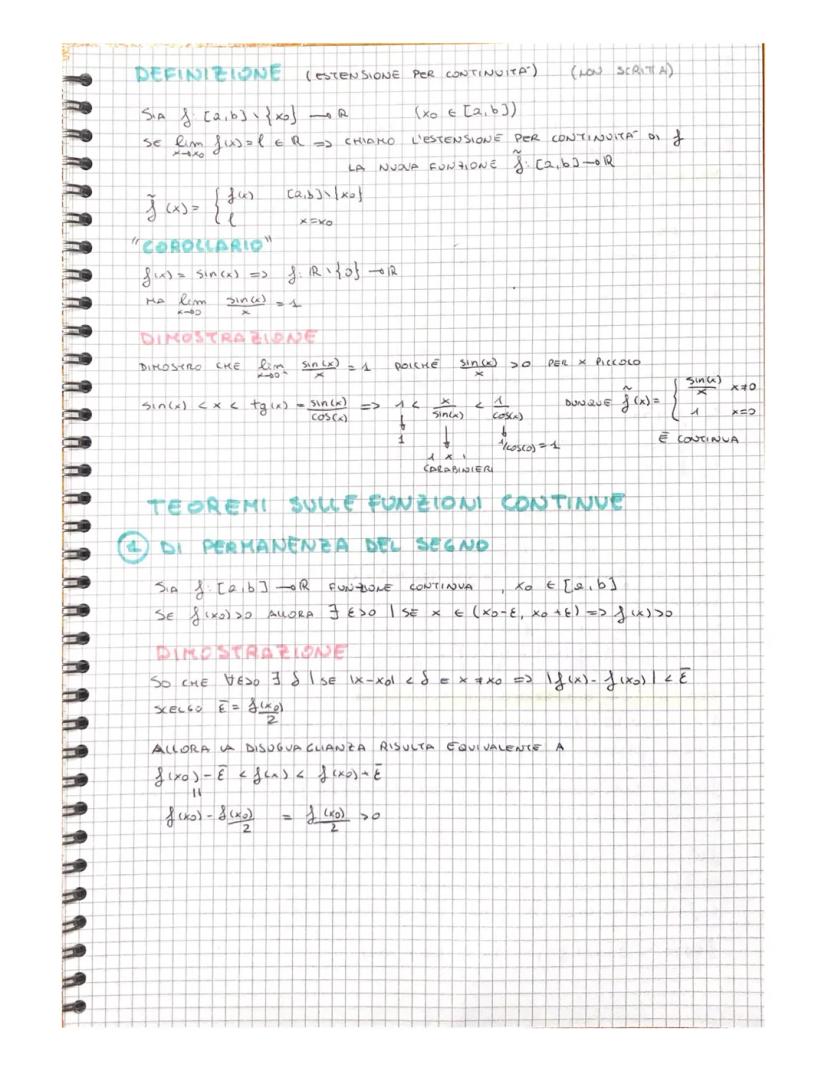 DEFINIZIONE (ESTENSIONE PER CONTINUITA') (NON SCRITTA)
SIA f: [a,b] \ {x0} → R (x0 ∈ [a,b])
SE lim x→x0 f(x) = l ∈ R => CHIAMO L'ESTENSIONE PER CONTINUITA' DI f
LA NUOVA FUNZIONE f̃: [a,b] → R
f̃(x) = { f(x) [a,b] \ {x0}
l x=x0
"COROLLARIO"
f(x) = sin(x) => f: R \ {0} → R
MA lim x→0 sin(x)/x = 1
DIMOSTRAZIONE
DIMOSTRO CHE lim x→0+ sin(x)/x = 1 POICHÉ sin(x)/x >0 PER x PICCOLO
sin(x) < x < tg(x) = sin(x)/cos(x) => 1 < x/sin(x) < 1/cos(x) DUNQUE f̃(x) = { sin(x)/x x≠0
1 x=0
↓ ↓ ↓
1 1/cos(0) = 1 È CONTINUA
1 x 1
CARABINIERI
TEOREMI SULLE FUNZIONI CONTINUE
1 DI PERMANENZA DEL SEGNO
SIA f: [a,b] → R FUNZIONE CONTINUA , x0 ∈ [a,b]
SE f(x0)>0 ALLORA ∃ ε>0 | SE x ∈ (x0-ε, x0+ε) => f(x)>0
DIMOSTRAZIONE
SO CHE ∀ε>0 ∃ δ | SE |x-x0| < δ E x ≠ x0 => |f(x) - f(x0)| < ε̄
SCELGO ε̄ = f(x0)/2
ALLORA LA DISUGUAGLIANZA RISULTA EQUIVALENTE A
f(x0) - ε̄ < f(x) < f(x0) + ε̄
=
f(x0) - f(x0)/2 = f(x0)/2 >0